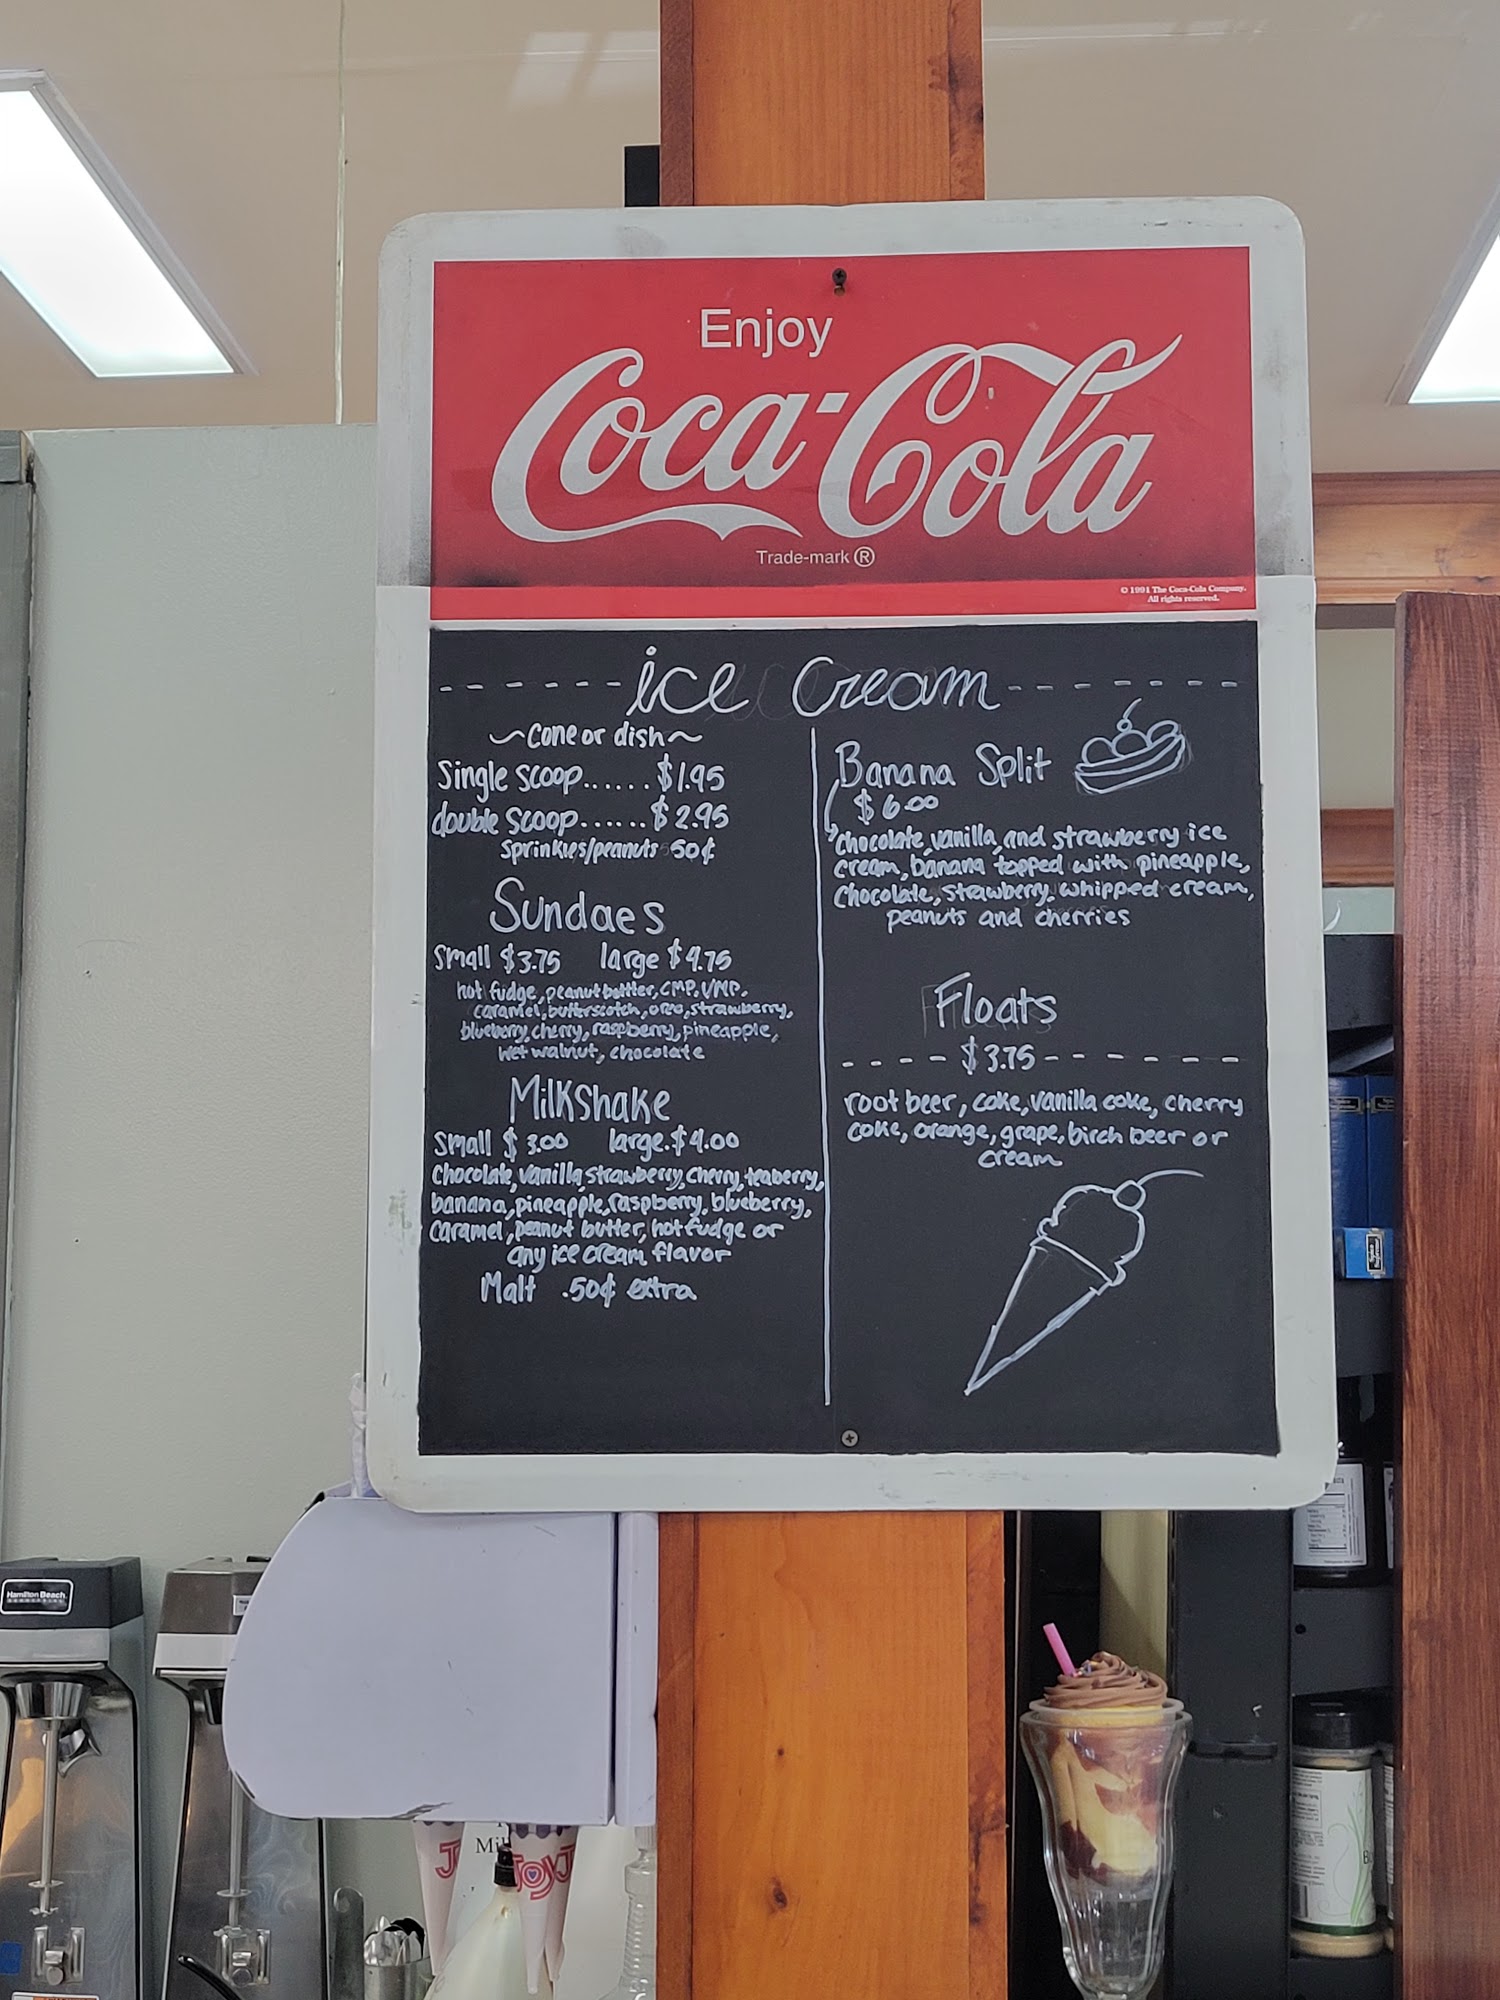 Enjoy
Coca-Cola
Trade-mark ®
© 1991 The Coca-Cola Company.
All rights reserved.
ice cream
~cone or dish~
Single scoop...... $1.95
double scoop...... $2.95
sprinkles/peanuts 50¢
Sundaes
small $3.75 large $4.75
hot fudge, peanut butter, CMP, VMP,
caramel, butterscotch, oreo, strawberry,
blueberry, cherry, raspberry, pineapple,
wet walnut, chocolate
Milkshake
small $3.00 large $4.00
Chocolate, vanilla, strawberry, cherry, teaberry,
banana, pineapple, raspberry, blueberry,
caramel, peanut butter, hot fudge or
any ice cream flavor
Malt .50¢ extra
Banana Split
$6.00
chocolate, vanilla, and strawberry ice
cream, banana topped with pineapple,
Chocolate, strawberry, whipped cream,
peanuts and cherries
Floats
$3.75
root beer, coke, vanilla coke, cherry
coke, orange, grape, birch beer or
cream
Hamilton Beach
JOY